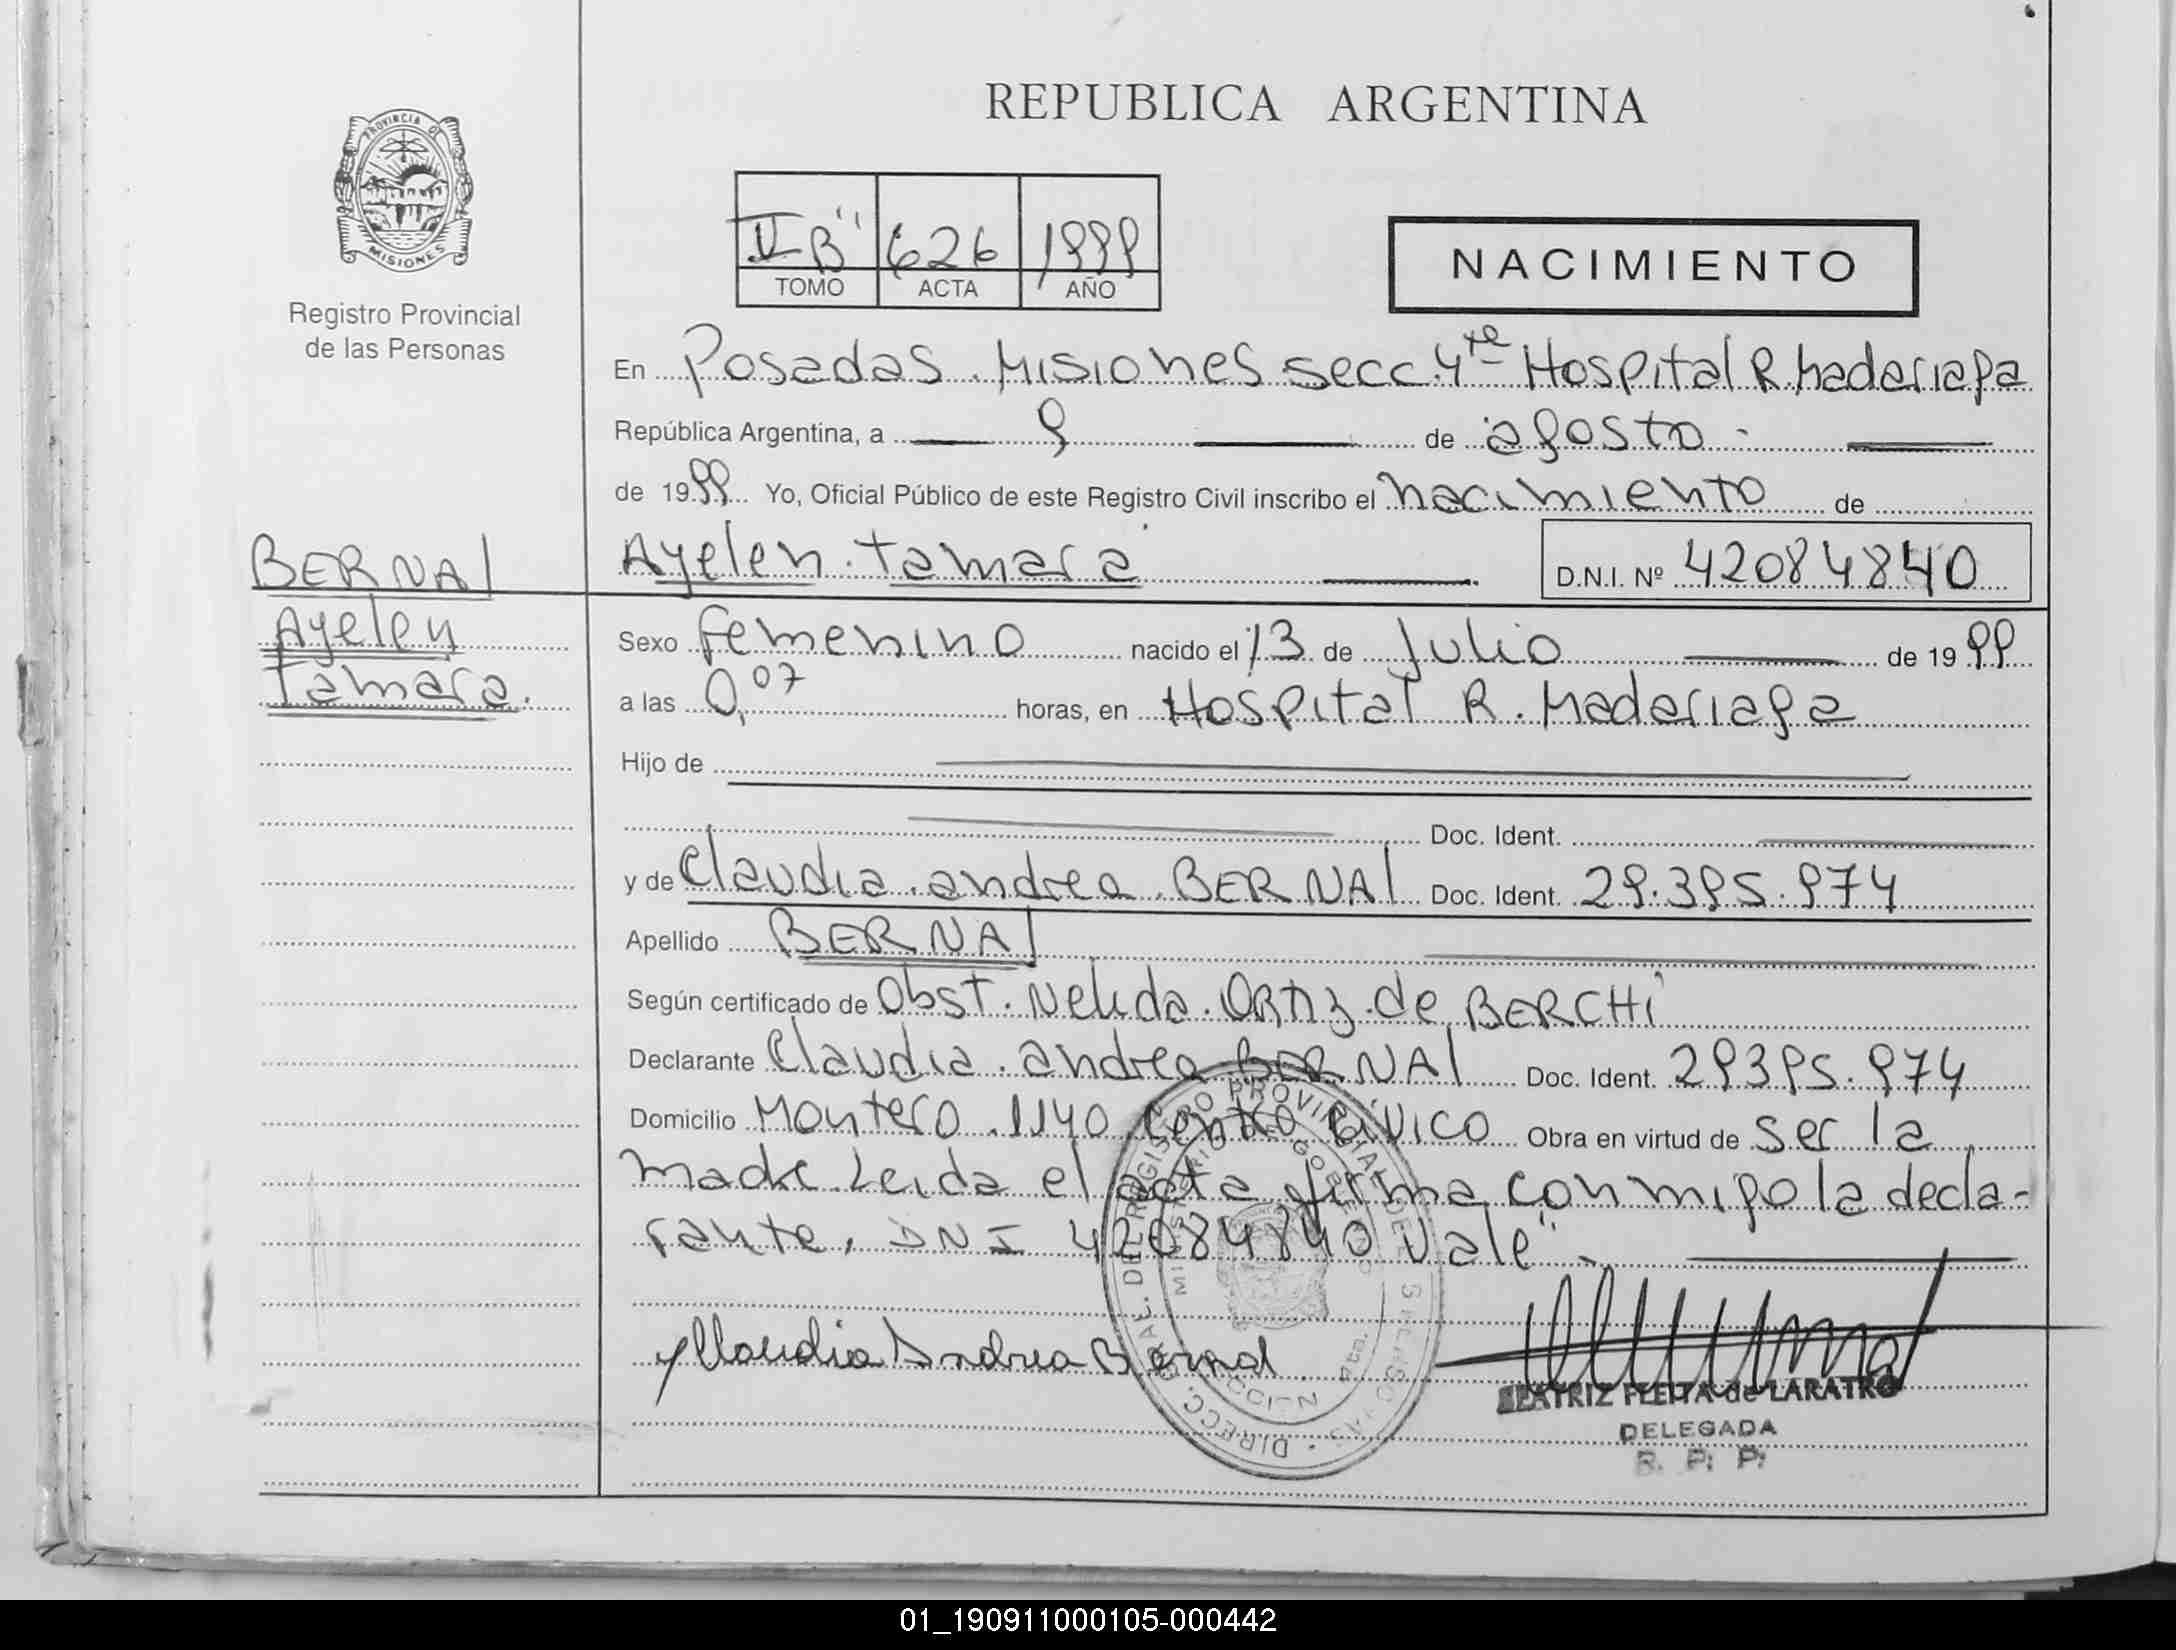 REPUBLICA ARGENTINA
PROVINCIA DE
MISIONES
Registro Provincial
de las Personas
II "B" 626 1999
TOMO ACTA AÑO
NACIMIENTO
En Posadas. Misiones secc. 4ta Hospital R. Madariaga
República Argentina, a 9 de agosto.
de 1999 Yo, Oficial Público de este Registro Civil inscribo el nacimiento de
BERNAl
Ayelen
Tamara.
Ayelen. Tamara
D.N.I. Nº 42084840
Sexo femenino nacido el 13 de Julio de 1999
a las 0,07 horas, en Hospital R. Madariaga
Hijo de
Doc. Ident.
y de Claudia. andrea. BERNAl Doc. Ident. 29.395.974
Apellido BERNAl
Según certificado de Obst. Nelida. Ortiz. de BERCHi
Declarante Claudia. andrea BERNAl Doc. Ident. 29395.974
Domicilio Montero. 1140 Centro Cívico Obra en virtud de ser la
madre. Leida el acta firma conmigo la decla-
rante. DNI 42084840 Vale".
Claudia Andrea Bernal
DIRECC. GRAL. DEL REGISTRO PROVINCIAL DE LAS PERSONAS
MINISTERIO DE GOBIERNO
SECCION 4ta.
BEATRIZ FLEITA de LARATRO
DELEGADA
R. P. P.
01_190911000105-000442